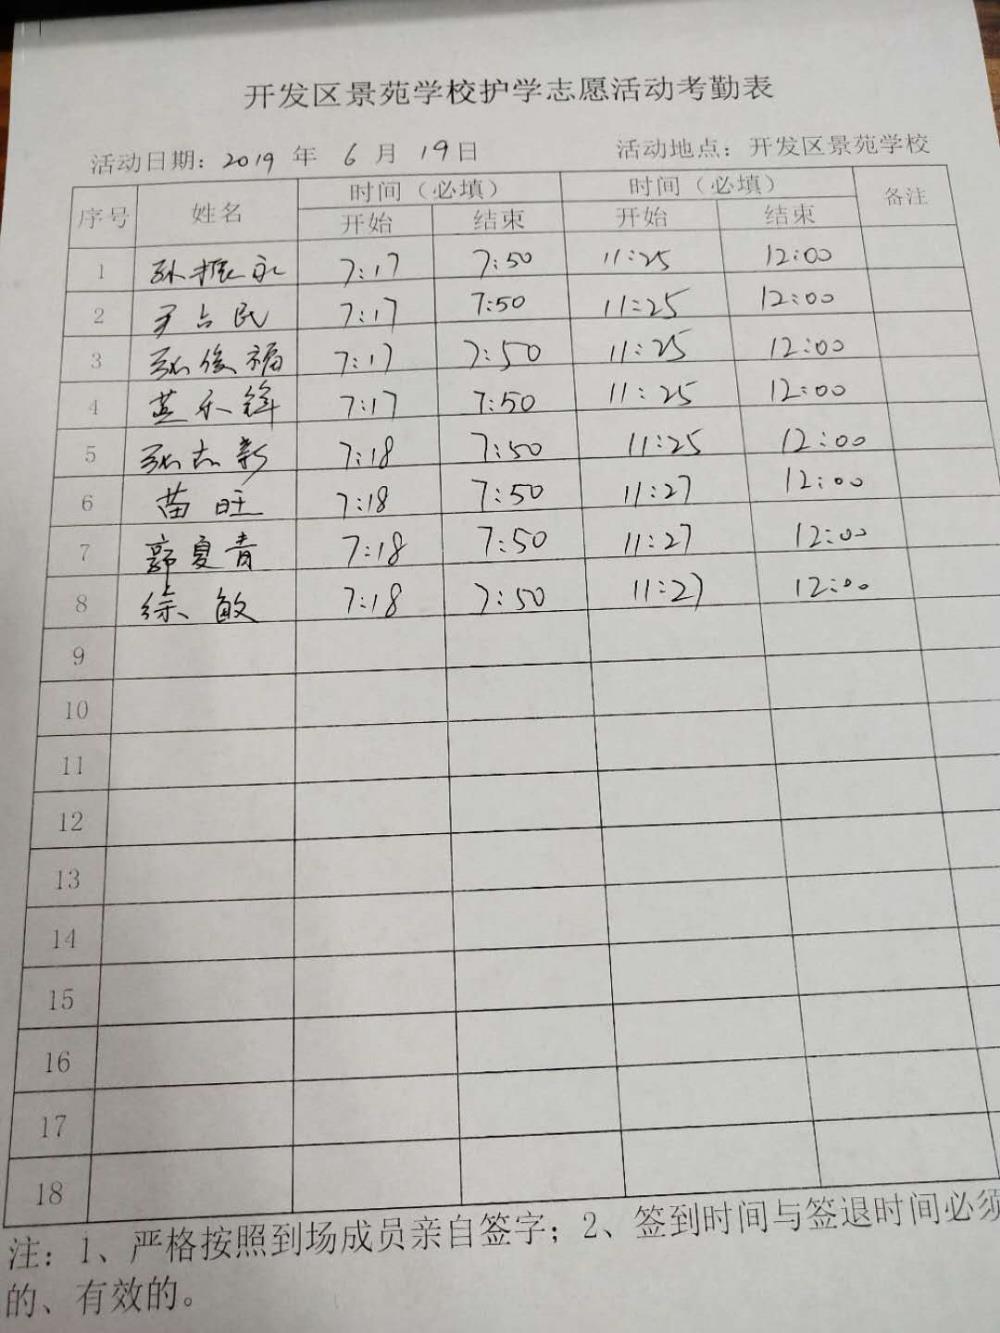 开发区景苑学校护学志愿活动考勤表
活动日期: 2019 年 6 月 19日 活动地点: 开发区景苑学校
序号 姓名 时间（必填） 时间（必填） 备注
开始 结束 开始 结束
1 孙振永 7:17 7:50 11:25 12:00
2 占民 7:17 7:50 11:25 12:00
3 张俊福 7:17 7:50 11:25 12:00
4 7:17 7:50 11:25 12:00
5 张志新 7:18 7:50 11:25 12:00
6 苗旺 7:18 7:50 11:27 12:00
7 郭夏青 7:18 7:50 11:27 12:00
8 徐敏 7:18 7:50 11:27 12:00
9
10
11
12
13
14
15
16
17
18
注: 1、严格按照到场成员亲自签字; 2、签到时间与签退时间必须
的、有效的。